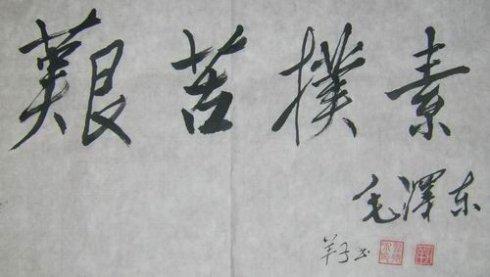 艱苦撲素
毛澤东